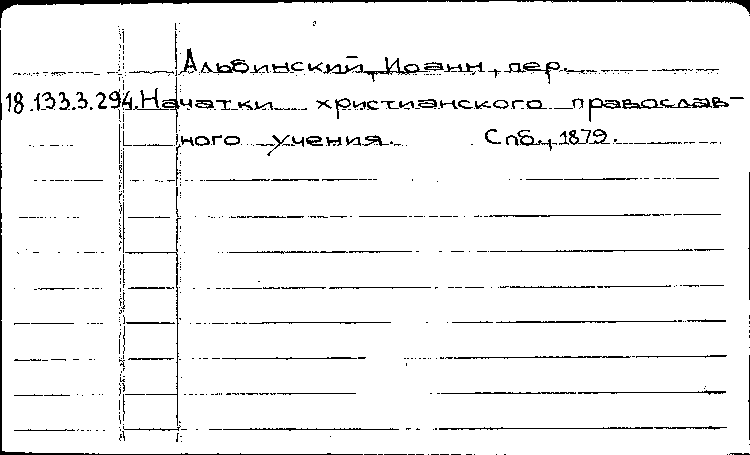 Альбинский, Иоанн, пер.
18.133.3.294. Начатки христианского православ-
ного учения. Спб., 1879.